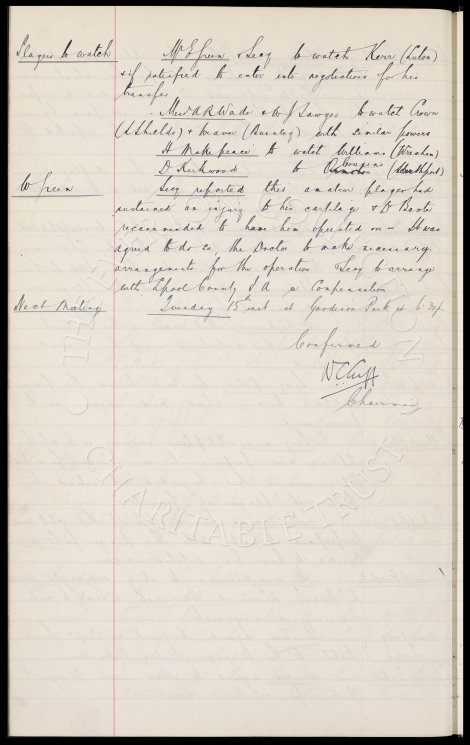 Players to watch Mr E Green & Secy to watch Kerr (Luton)
& if satisfied to enter into negotiations for his
transfer.
Messrs A R Wade & W J Sawyer to watch Crown
(S Shields) & (Burnley) with similar powers
H Makepeace to watch Williams (Wrexham)
D Kirkwood to Cousens (Southport)
W Green Secy reported this amateur player had
sustained an injury to his cartilage & D Baxter
recommended to have him operated on - It was
agreed to do so, the Doctor to make necessary
arrangements for the operation Secy to arrange
with Lpool County F A re Compensation
Next Meeting Tuesday 15th inst at Goodison Park at 6:30 p.
Confirmed
W C Cuff
Chairman
© THE CHARITABLE TRUST